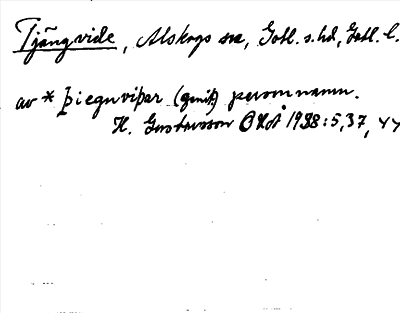 Tjängvide, Alskogs sn, Gotl. s. hd, Gotl. l.
av * þiegnviþar (genit) personnamn.
H. Gustavsson 1938:5, 37, 44